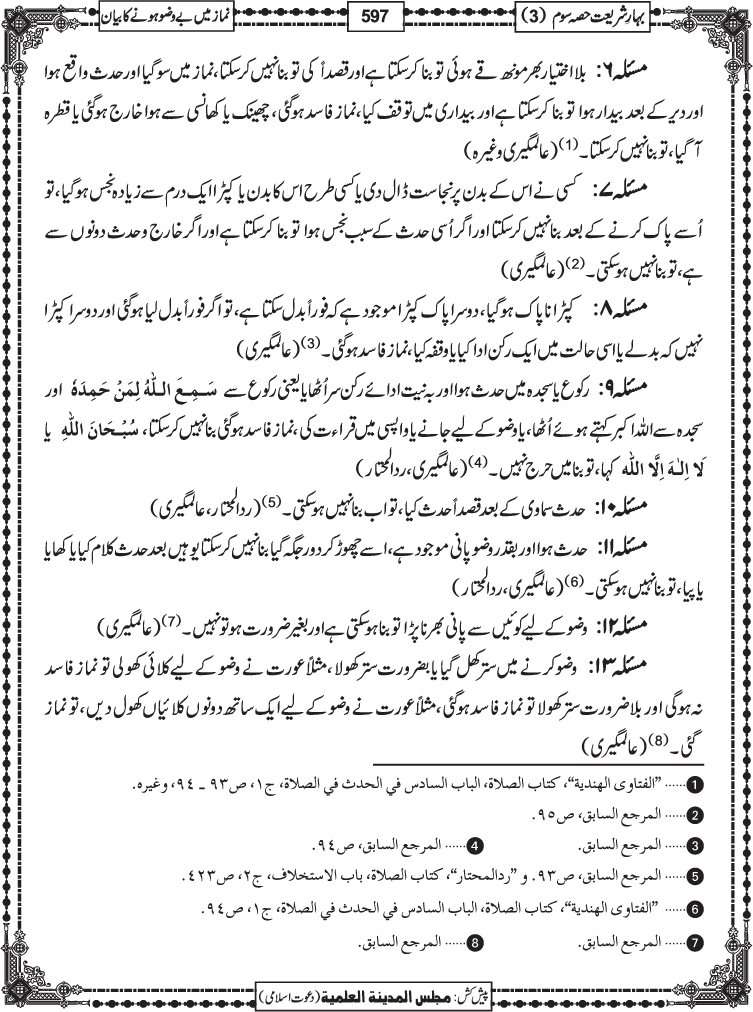 بہارِ شریعت حصہ سوم (3)
597
نماز میں بے وضو ہونے کا بیان
مسئلہ ۶: بلا اختیار بھر مونھ قے ہوئی تو بنا کر سکتا ہے اور قصداً کی تو بنا نہیں کر سکتا، نماز میں سو گیا اور حدث واقع ہوا
اور دیر کے بعد بیدار ہوا تو بنا کر سکتا ہے اور بیداری میں توقف کیا، نماز فاسد ہوگئی، چھینک یا کھانسی سے ہوا خارج ہوگئی یا قطرہ
آ گیا، تو بنا نہیں کر سکتا۔(1) (عالمگیری وغیرہ)
مسئلہ ۷: کسی نے اس کے بدن پر نجاست ڈال دی یا کسی طرح اس کا بدن یا کپڑا ایک درم سے زیادہ نجس ہوگیا، تو
اُسے پاک کرنے کے بعد بنا نہیں کر سکتا اور اگر اُسی حدث کے سبب نجس ہوا تو بنا کر سکتا ہے اور اگر خارج و حدث دونوں سے
ہے، تو بنا نہیں ہوسکتی۔(2) (عالمگیری)
مسئلہ ۸: کپڑا ناپاک ہوگیا، دوسرا پاک کپڑا موجود ہے کہ فوراً بدل سکتا ہے، تو اگر فوراً بدل لیا ہوگئی اور دوسرا کپڑا
نہیں کہ بدلے یا اسی حالت میں ایک رکن ادا کیا یا وقفہ کیا، نماز فاسد ہوگئی۔(3) (عالمگیری)
مسئلہ ۹: رکوع یا سجدہ میں حدث ہوا اور بہ نیت ادائے رکن سر اُٹھایا یعنی رکوع سے سَمِعَ اللہُ لِمَنْ حَمِدَہٗ اور
سجدہ سے اللہ اکبر کہتے ہوئے اُٹھا، یا وضو کے لیے جانے یا واپسی میں قراءت کی، نماز فاسد ہوگئی بنا نہیں کر سکتا، سُبْحَانَ اللہِ یا
لَا اِلٰہَ اِلَّا اللہ کہا، تو بنا میں حرج نہیں۔(4) (عالمگیری، ردالمحتار)
مسئلہ ۱۰: حدث سماوی کے بعد قصداً حدث کیا، تو اب بنا نہیں ہوسکتی۔(5) (ردالمحتار، عالمگیری)
مسئلہ ۱۱: حدث ہوا اور بقدر وضو پانی موجود ہے، اسے چھوڑ کر دور جگہ گیا بنا نہیں کر سکتا یوہیں بعد حدث کلام کیا یا کھایا
یا پیا، تو بنا نہیں ہوسکتی۔(6) (عالمگیری، ردالمحتار)
مسئلہ ۱۲: وضو کے لیے کوئیں سے پانی بھرنا پڑا تو بنا ہوسکتی ہے اور بغیر ضرورت ہو تو نہیں۔(7) (عالمگیری)
مسئلہ ۱۳: وضو کرنے میں ستر کھل گیا یا بضرورت ستر کھولا، مثلاً عورت نے وضو کے لیے کلائی کھولی تو نماز فاسد
نہ ہوگی اور بلا ضرورت ستر کھولا تو نماز فاسد ہوگئی، مثلاً عورت نے وضو کے لیے ایک ساتھ دونوں کلائیاں کھول دیں، تو نماز
گئی۔(8) (عالمگیری)
1 ...... ”الفتاوی الھندیۃ“، کتاب الصلاۃ، الباب السادس في الحدث في الصلاۃ، ج۱، ص۹۳ ـ ۹٤، وغیرہ.
2 ...... المرجع السابق، ص۹٥.
3 ...... المرجع السابق. 4 ...... المرجع السابق، ص۹٤.
5 ...... المرجع السابق، ص۹۳. و ”ردالمحتار“، کتاب الصلاۃ، باب الاستخلاف، ج۲، ص٤۲۳.
6 ...... ”الفتاوی الھندیۃ“، کتاب الصلاۃ، الباب السادس في الحدث في الصلاۃ، ج۱، ص۹٤.
7 ...... المرجع السابق. 8 ...... المرجع السابق.
پیش کش: مجلس المدینۃ العلمیۃ (دعوت اسلامی)